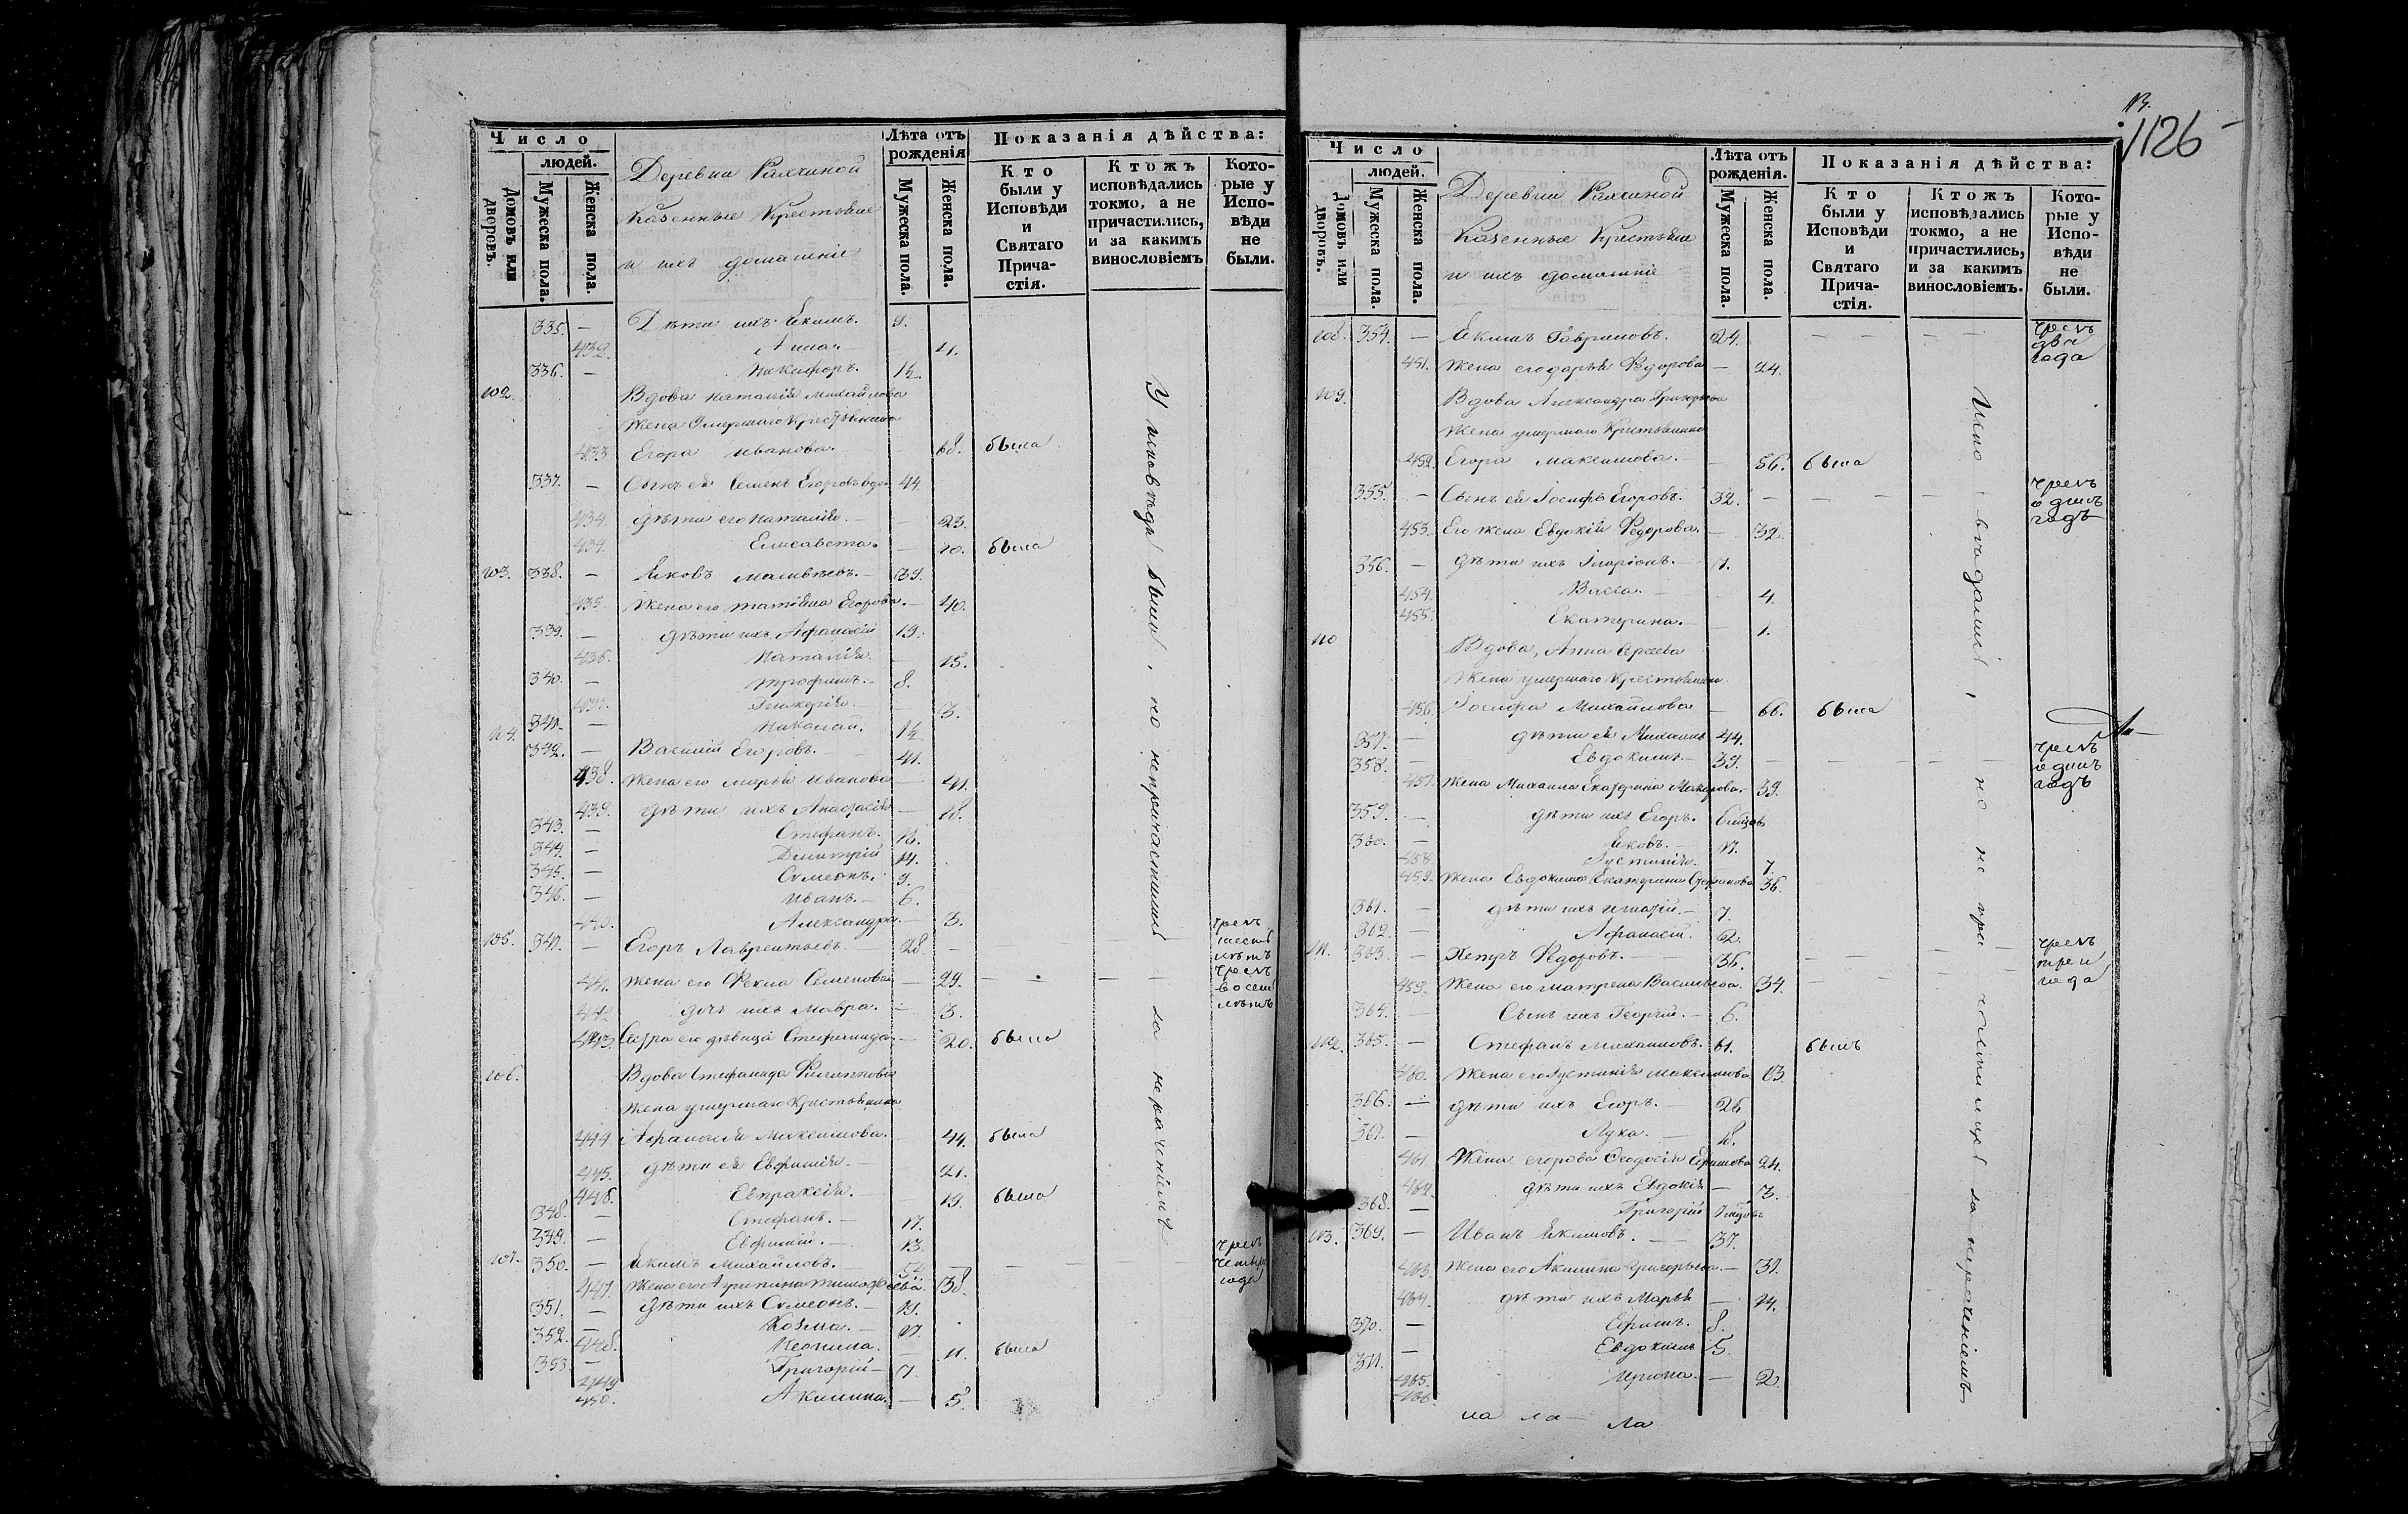 Число
людей.
Домовъ или дворовъ.
Мужеска пола.
Женска пола.
Деревни
Казенные Крестьяне
и ихъ домашніе
Лѣта отъ рожденія
Мужеска пола.
Женска пола.
Показанія дѣйства:
Кто были у Исповѣди и Святаго Причастія.
Ктожъ исповѣдались токмо, а не причастились, и за какимъ винословіемъ
Которые у Исповѣди не были.
335. — Дѣти ихъ Екимъ. 9.
432. Анна 4.
336. — Никифоръ. 1½
102. Вдова Наталія Михайлова
жена умершаго Крестьянина
433. Егора Иванова. 68. была
337. — Сынъ ея Семенъ Егоровъ вдов 44.
434. дѣти его Наталія. — 23.
434. Елисавета. — 20. была
103. 338. — Яковъ Матвѣевъ. — 39.
435. Жена его Татіана Егорова. — 40.
339. — дѣти ихъ Афанасій 19.
436. Наталія. — 15.
340. — Трофимъ. — 8.
437. Гликерія. — 3.
341. — Николай. 1½
104. 342. — Василій Егоровъ. — 41.
438. Жена его Марья Иванова — 41.
439. дѣти ихъ Анастасія — 18.
343. — Стефанъ. 16.
344. — Димитрій 14.
345. — Симеонъ. 9.
346. — Иванъ. — 6.
440. Александра. — 3.
105. 347. — Егоръ Лаврентьевъ. — 28. —
чрезъ шесть лѣтъ
441. Жена его Фекла Семенова — 29. — — — —
чрезъ восемь лѣтъ
442 дочь ихъ Мавра. — 3.
443. Сестра его дѣвица Стефанида — 20. была
106. Вдова Стефанида Филиппова
жена умершаго Крестьянина
444 Афанасія Максимова. 44. была
445. дѣти ея Евфимія. — 21.
446. Евпраксія. 19. была
348. — Стефанъ. — 17.
349. — Евфимій. — 13.
107. 350. — Якимъ Михайловъ. — — — — —
чрезъ четыре года
447. Жена его Агрипина Тимофѣева. 38.
351. — дѣти ихъ Симеонъ. — 19.
352. — Козма. — 17.
448. Неонила. — 11. была
353. — Григорій — 7.
449
450. Акилина. — 5.
У исповѣди были, но непричастились за нерачѣніемъ
1126
Число
людей.
Домовъ или дворовъ.
Мужеска пола.
Женска пола.
Деревни
Казенные Крестьяне
и ихъ домашніе
Лѣта отъ рожденія.
Мужеска пола.
Женска пола.
Показанія дѣйства:
Кто были у Исповѣди и Святаго Причастія.
Ктожъ исповѣдались токмо, а не причастились, и за какимъ винословіемъ.
Которые у Исповѣди не были.
108. 354. — Якимъ Гавриловъ. 24. — — — —
чрезъ два года
451. Жена его Дарья Ѳедорова — 24.
109. Вдова Александра Григорьева
жена умершаго Крестьянина
452. Егора Максимова. — 56. была
355. — Сынъ ея Іосифъ Егоровъ. 32. — — — —
чрезъ одинъ годъ
453. Его жена Евдокія Ѳедорова. — 32.
356. — дѣти ихъ Иларіонъ. — 7.
454. Васса. — 4.
455. Екатерина. — 1.
110 Вдова, Анна Сергеева
жена умершаго Крестьянина
456. Іосифа Михайлова — 66. была
357. — дѣти ея Михаилъ 44.
358. — Евдокимъ — 39. — — — —
чрезъ одинъ годъ
457. Жена Михаила Екатерина 39.
359. — дѣти ихъ Егоръ.
360. — Яковъ. — 17.
458 Іустинія. 7.
459. Жена Евдокима Екатерина Степанова 36.
361. — дѣти ихъ Игнатій. — 7.
362. — Афанасій. 2.
111. 363. — Петръ Ѳедоровъ. — 36. — — — —
чрезъ три года
459. Жена его Матрена Васильева. 34. —
364. — Сынъ ихъ Георгій. — 6.
112. 365. — Стефанъ Михаиловъ. 61. былъ
460. Жена его Іустинія Максимова 63.
366. — дѣти ихъ Егоръ. — 26
367. — Лука. — 18.
461. Жена Егорова Ѳеодосія Ефимова 24.
462. дѣти ихъ Евдокія — 3.
368. — Григорій
113. 369. — Иванъ Якимовъ. — 37.
463. Жена его Акилина Григорьева. — 37.
464. дѣти ихъ Марья — 14.
370. — Ефимъ. 8.
371. — Евдокимъ 5.
465. — 2.
466.
но не причастились за нерачѣніемъ